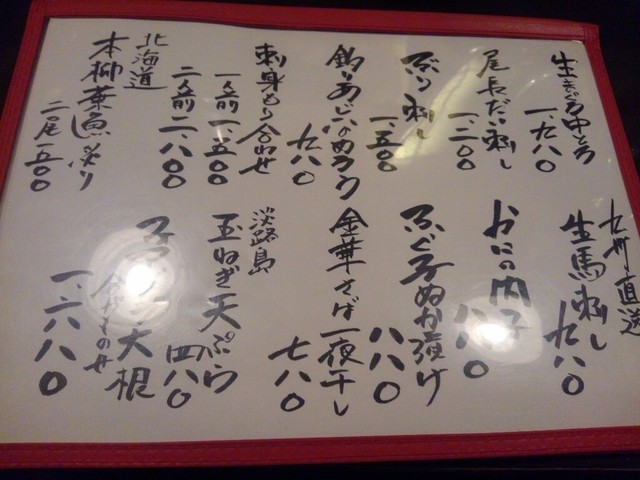 生まぐろ中とろ
一、九八〇
尾長だい刺し
一、二〇〇
ぶり刺し
一、五〇〇
釣りあじのぬろう
九八〇
刺身もり合わせ
一人前一、五〇〇
二人前二、八〇〇
北海道
本柳葉魚炙り
二尾五〇〇
九州直送
生馬刺し
九八〇
かにの内子
八八〇
ふぐ子ぬか漬け
八八〇
金華さば一夜干し
七八〇
淡路島
玉ねぎ天ぷら
四八〇
大根
一、六八〇